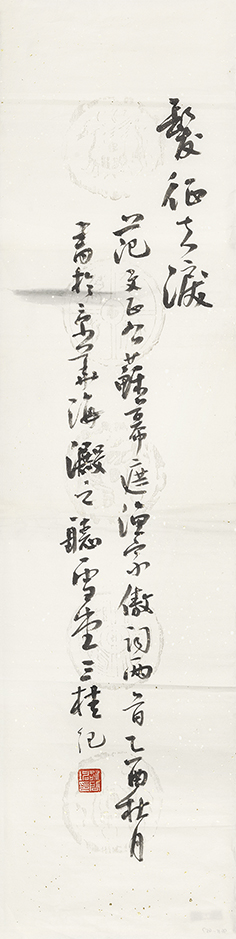 髮征夫淚
范文正公蘇幕遮漁家傲詞兩首乙酉秋月
書於京華海澱之聽雪堂三桂記